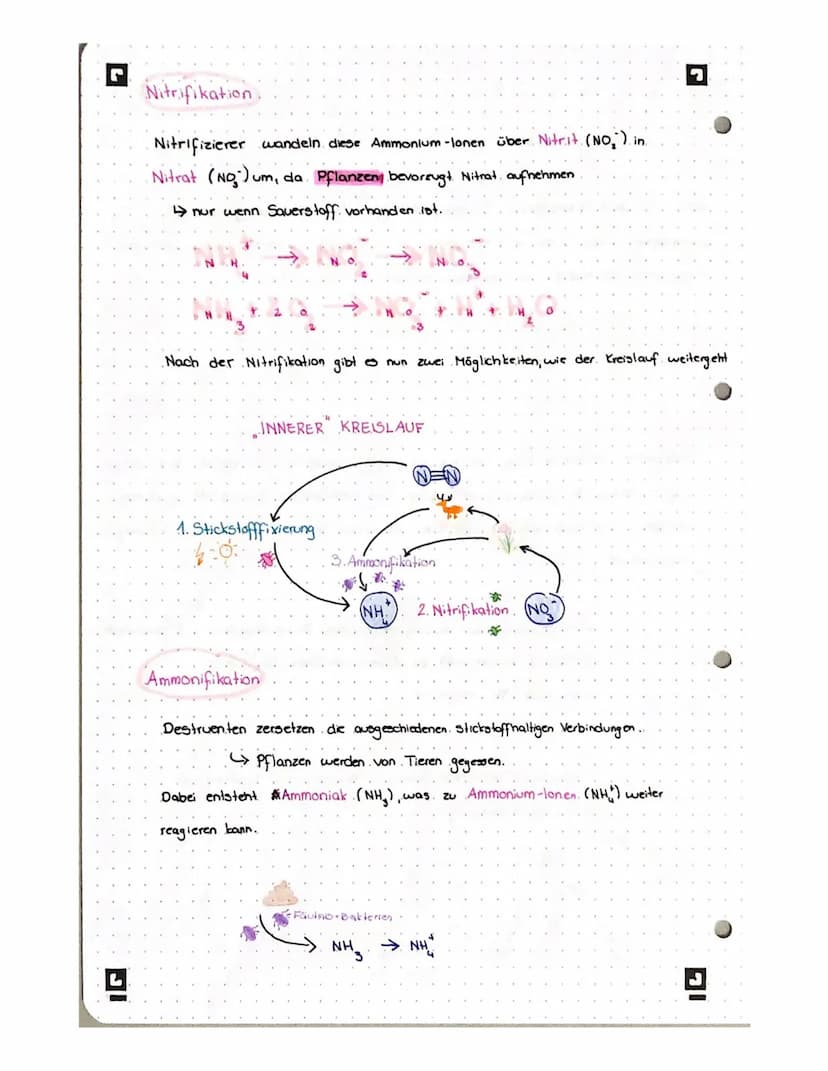 Nitrifikation
Nitrifizierer wandeln diese Ammonium-Ionen über Nitrit (NO₂⁻) in
Nitrat (NO₃⁻) um, da Pflanzen bevorzugt Nitrat aufnehmen
↳ nur wenn Sauerstoff vorhanden ist.
NH₄⁺ → NO₂⁻ → NO₃⁻
NH₃ + 2O₂ → NO₃⁻ + H⁺ + H₂O
Nach der Nitrifikation gibt es nun zwei Möglichkeiten, wie der Kreislauf weitergeht
„INNERER" KREISLAUF
N≡N
1. Stickstofffixierung
3. Ammonifikation
NH₄⁺ 2. Nitrifikation NO₃⁻
Ammonifikation
Destruenten zersetzen die ausgeschiedenen stickstoffhaltigen Verbindungen.
↳ Pflanzen werden von Tieren gegessen.
Dabei entsteht Ammoniak (NH₃), was zu Ammonium-Ionen (NH₄⁺) weiter
reagieren kann.
Fäulnis-Bakterien
NH₃ → NH₄⁺